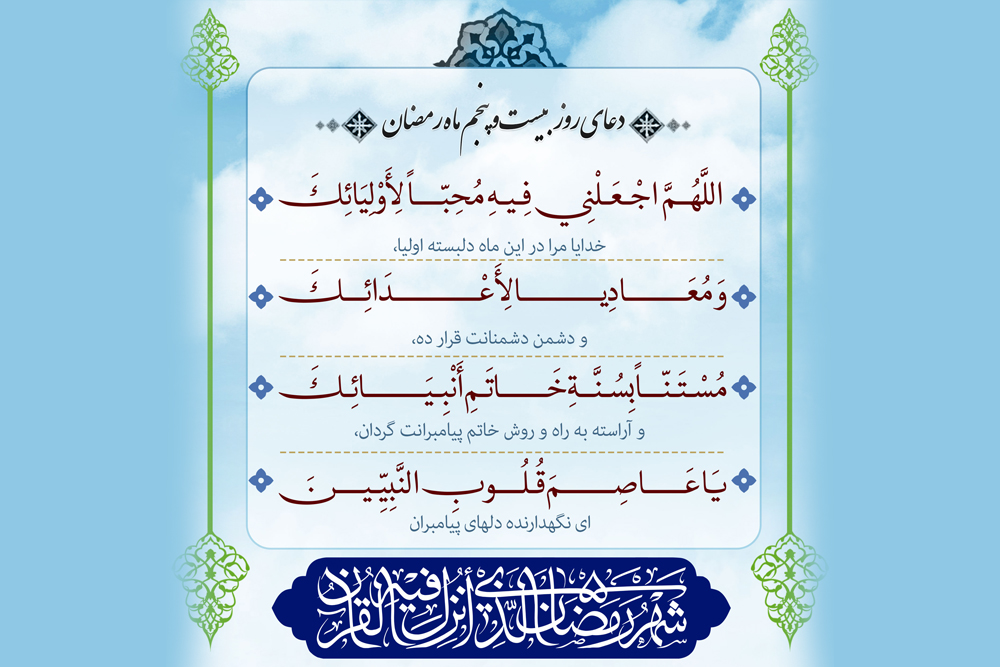 دعای روز بیست و پنجم ماه رمضان
اللَّهُمَّ اجْعَلْنِي فِيهِ مُحِبّاً لِأَوْلِيَائِكَ
خدایا مرا در این ماه دلبسته اولیا،
وَ مُعَادِيا لِأَعْدَائِكَ
و دشمن دشمنانت قرار ده،
مُسْتَنّاً بِسُنَّةِ خَاتَمِ أَنْبِيَائِكَ
و آراسته به راه و روش خاتم پیامبرانت گردان،
يَا عَاصِمَ قُلُوبِ النَّبِيِّينَ
ای نگهدارنده دلهای پیامبران
شَهْرُ رَمَضَانَ الَّذِي أُنْزِلَ فِيهِ الْقُرْآنُ